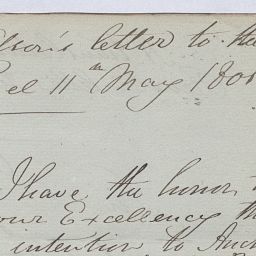 lson's letter to the
el 11th May 180
I have the honor
our Excellency th
intention to Anch